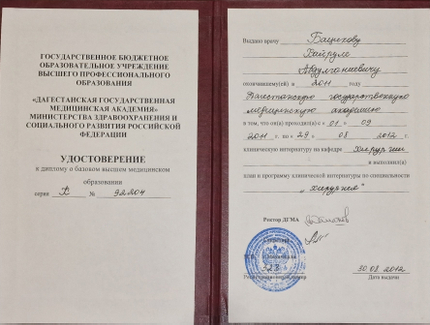 ГОСУДАРСТВЕННОЕ БЮДЖЕТНОЕ
ОБРАЗОВАТЕЛЬНОЕ УЧРЕЖДЕНИЕ
ВЫСШЕГО ПРОФЕССИОНАЛЬНОГО
ОБРАЗОВАНИЯ
«ДАГЕСТАНСКАЯ ГОСУДАРСТВЕННАЯ
МЕДИЦИНСКАЯ АКАДЕМИЯ»
МИНИСТЕРСТВА ЗДРАВООХРАНЕНИЯ И
СОЦИАЛЬНОГО РАЗВИТИЯ РОССИЙСКОЙ
ФЕДЕРАЦИИ
УДОСТОВЕРЕНИЕ
к диплому о базовом высшем медицинском
образовании
серия № 92204
Выдано врачу
окончившему(ей) в 2011 году
Дагестанскую государственную
медицинскую академию
в том, что он(а) проходил(а) с «01» 09
2011 г. по «29» 08 2012 г.
клиническую интернатуру на кафедре хирургии
и выполнил(а)
план и программу клинической интернатуры по специальности
«хирургия»
Ректор ДГМА
323
30.08.2012
Дата выдачи